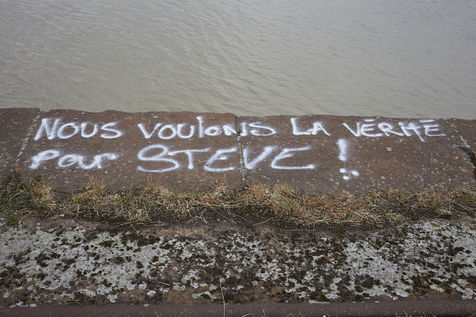 NOUS VOULONS LA VÉRITÉ
POUR STEVE !